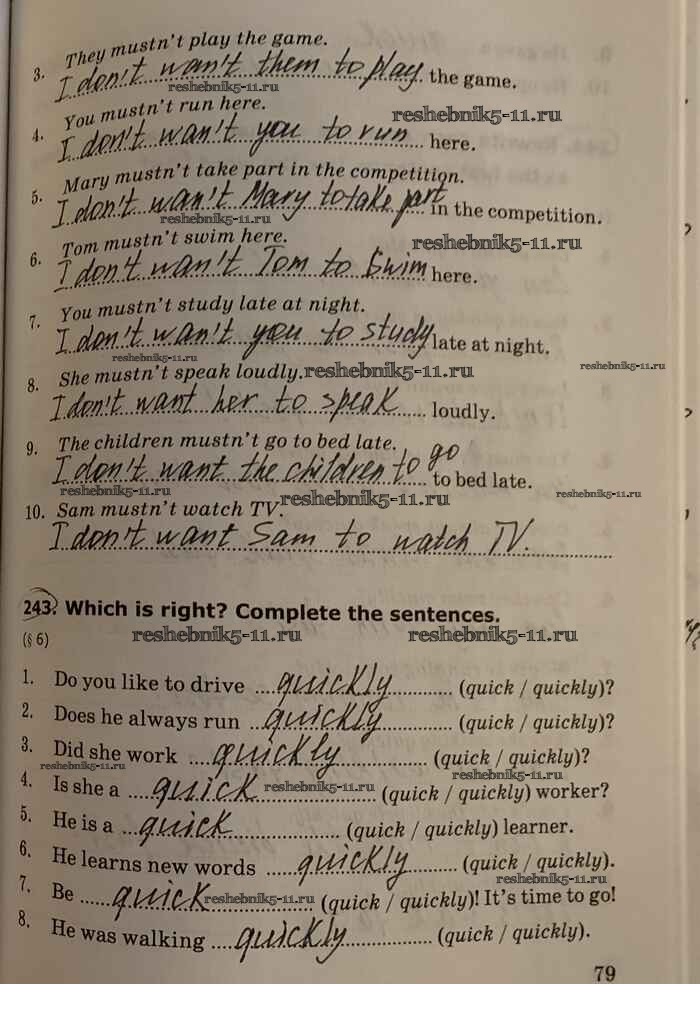 3. They mustn't play the game.
I don't wan't them to play the game.
reshebnik5-11.ru
4. You mustn't run here.
reshebnik5-11.ru
I don't wan't you to run here.
5. Mary mustn't take part in the competition.
I don't wan't Mary to take part in the competition.
reshebnik5-11.ru
6. Tom mustn't swim here.
reshebnik5-11.ru
I don't wan't Tom to Swim here.
7. You mustn't study late at night.
I don't wan't you to study late at night.
reshebnik5-11.ru
reshebnik5-11.ru
8. She mustn't speak loudly.
reshebnik5-11.ru
I don't want her to speak loudly.
9. The children mustn't go to bed late.
I don't want the children to go to bed late.
reshebnik5-11.ru
reshebnik5-11.ru
reshebnik5-11.ru
10. Sam mustn't watch TV.
I don't want Sam to watch TV.
243. Which is right? Complete the sentences.
(§ 6)
reshebnik5-11.ru
reshebnik5-11.ru
1. Do you like to drive quickly (quick / quickly)?
2. Does he always run quickly (quick / quickly)?
3. Did she work quickly (quick / quickly)?
reshebnik5-11.ru
reshebnik5-11.ru
4. Is she a quick (quick / quickly) worker?
reshebnik5-11.ru
5. He is a quick (quick / quickly) learner.
6. He learns new words quickly (quick / quickly).
7. Be quick (quick / quickly)! It's time to go!
reshebnik5-11.ru
8. He was walking quickly (quick / quickly).
79